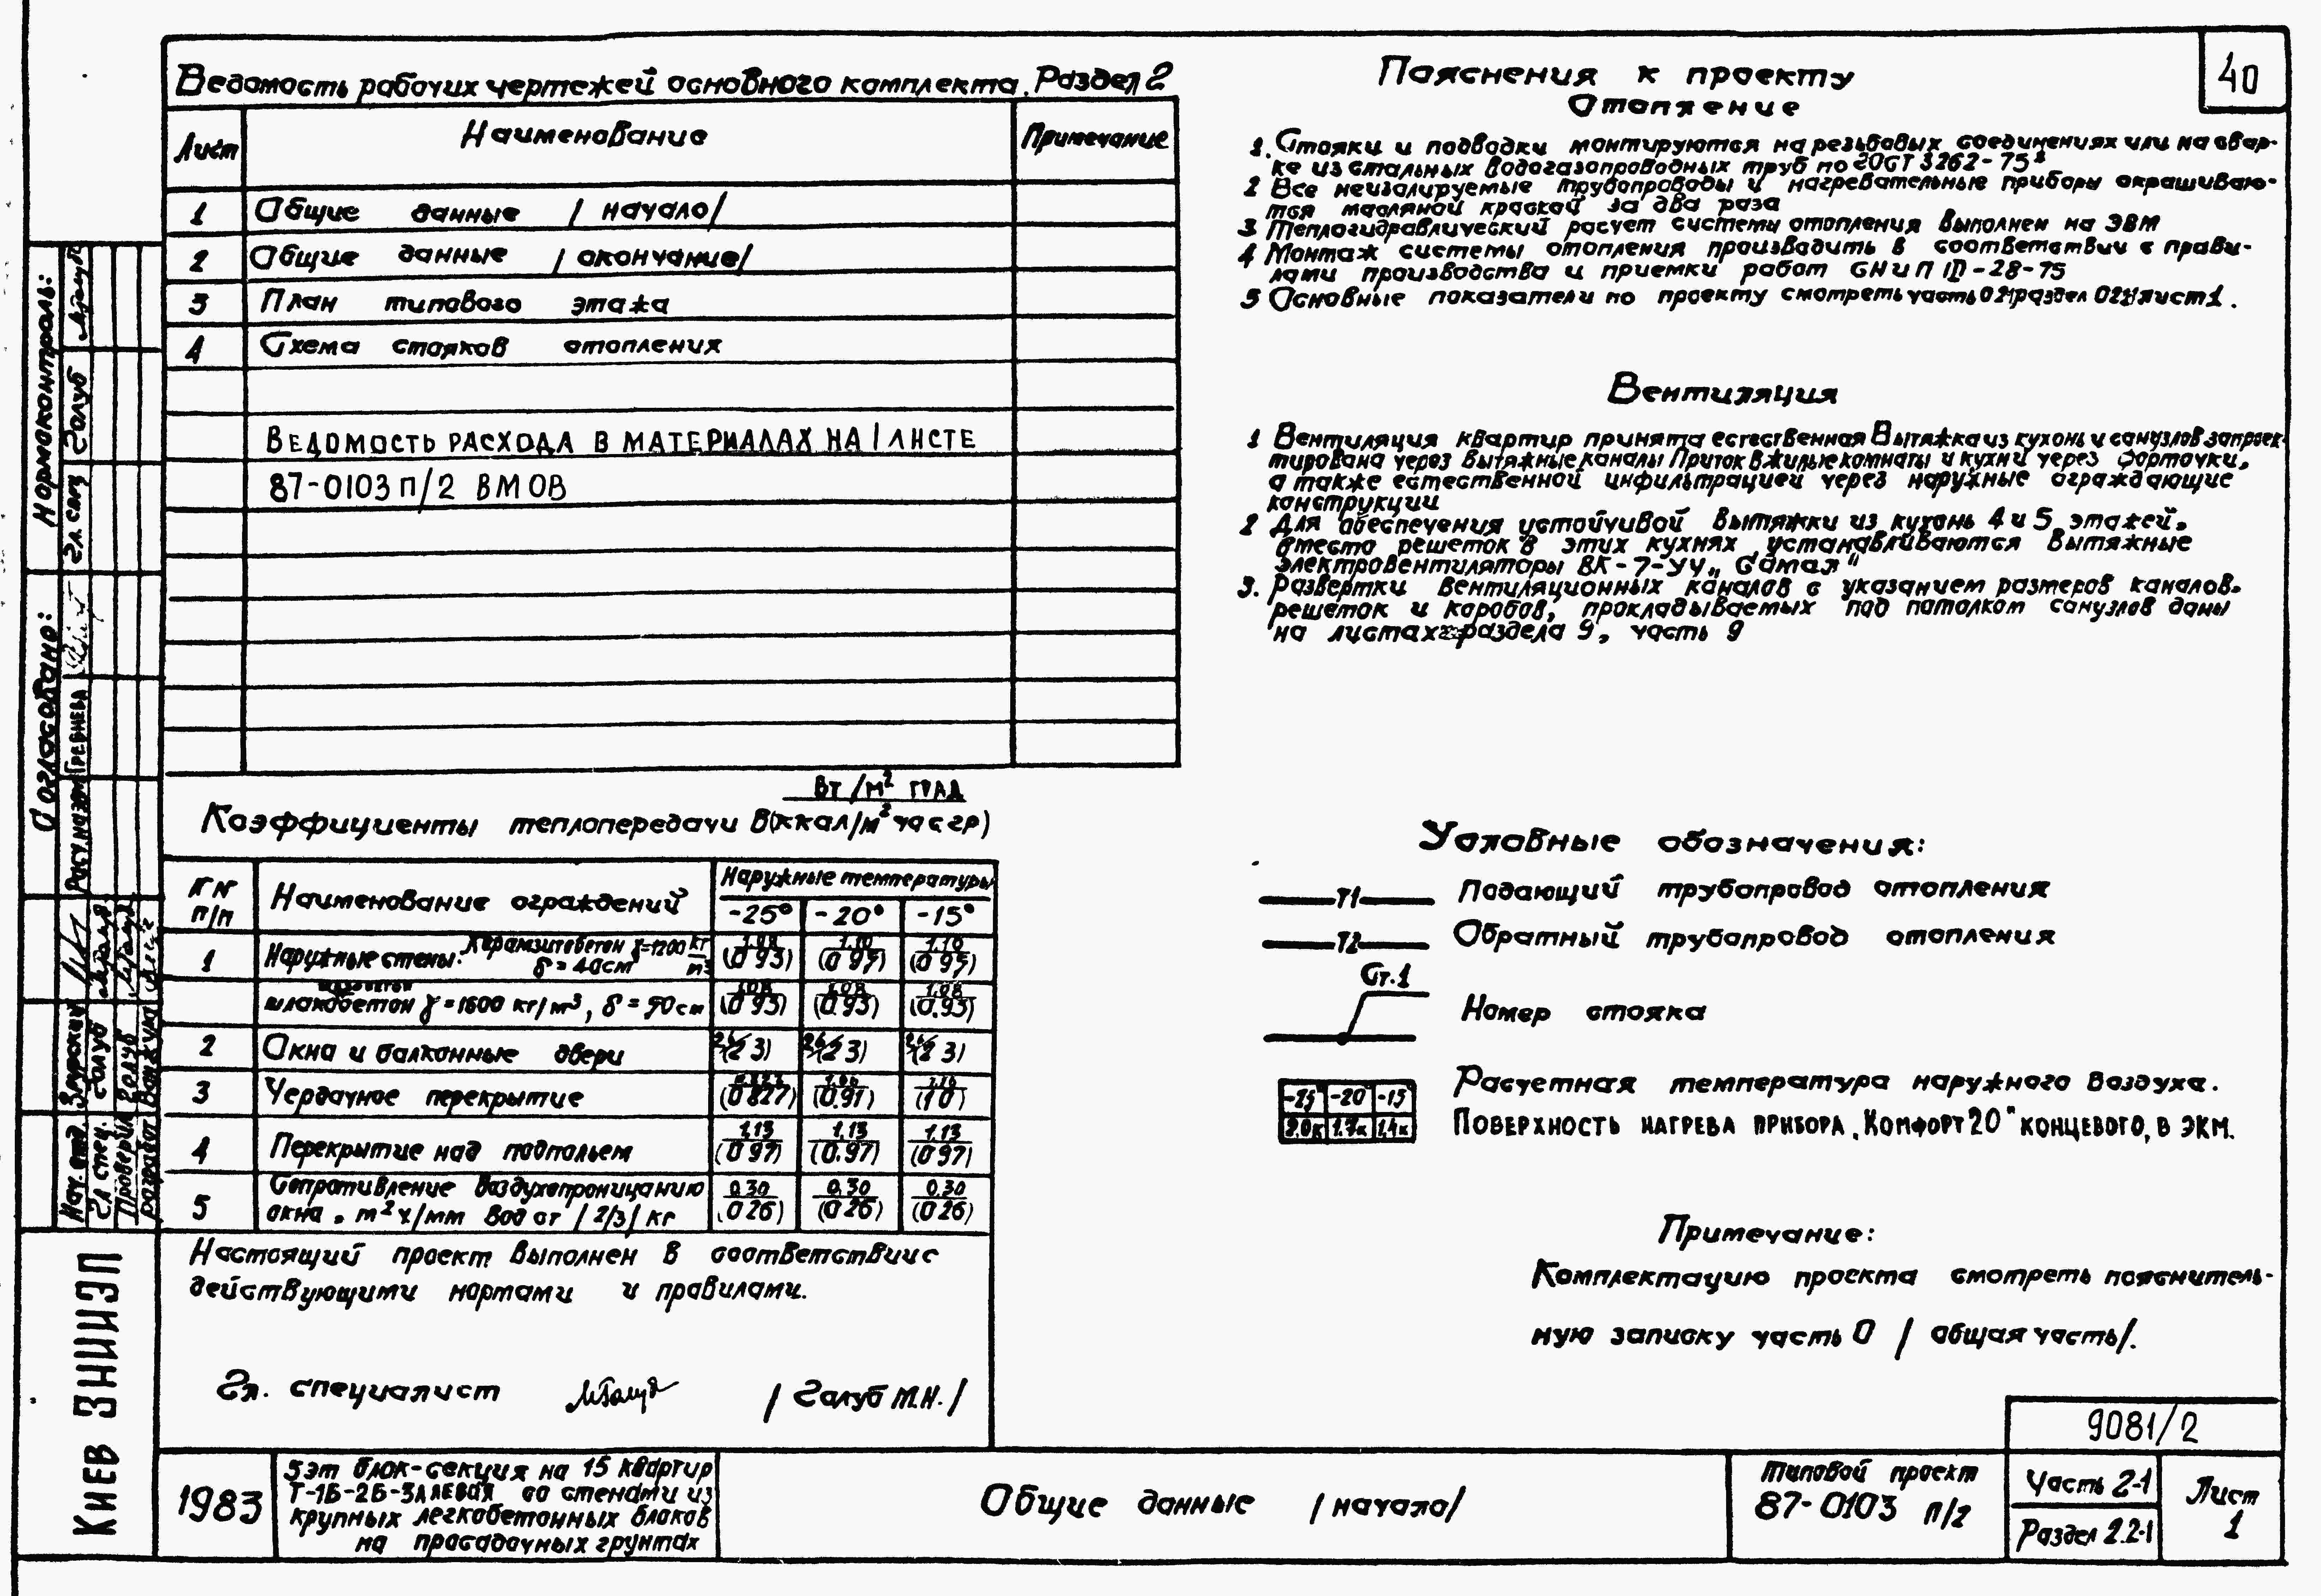 40
Ведомость рабочих чертежей основного комплекта. Раздел 2
Лист Наименование Примечание
1 Общие данные /начало/
2 Общие данные /окончание/
3 План типового этажа
4 Схема стояков отопления
Ведомость расхода в материалах на 1 листе
87-0103 п/2 ВМ ОВ
Вт/м² град
Коэффициенты теплопередачи в (ккал/м² час гр)
№№ п/п Наименование ограждений Наружные температуры
-25° -20° -15°
1 Наружные стены: Керамзитобетон γ=1200 кг/м³
δ=40см
(0 93) (0 97) (0 97)
шлакобетон γ=1600 кг/м³, δ=50см
1.08 1.08 1.08
(0 93) (0.93) (0.93)
2 Окна и балконные двери (2 3) (2 3) (2 3)
3 Чердачное перекрытие (0 827) (0.91) (1 0)
1.13 1.13 1.13
4 Перекрытие над подпольем (0 97) (0.97) (0 97)
5 Сопротивление воздухопроницанию
окна, м² ч/мм вод ст /2/3/ кг
0.30 0.30 0.30
(0 26) (0 26) (0 26)
Настоящий проект выполнен в соответствии с
действующими нормами и правилами.
Гл. специалист /Голуб М.Н./
Пояснения к проекту
Отопление
1. Стояки и подводки монтируются на резьбовых соединениях или на свар-
ке из стальных водогазопроводных труб по ГОСТ 3262-75*
2 Все неизолируемые трубопроводы и нагревательные приборы окрашиваю-
тся масляной краской за два раза
3 Теплогидравлический расчет системы отопления выполнен на ЭВМ
4 Монтаж системы отопления производить в соответствии с прави-
лами производства и приемки работ СНиП III-28-75
5 Основные показатели по проекту смотреть часть 02 раздел лист 1.
Вентиляция
1 Вентиляция квартир принята естественная Вытяжка из кухонь и санузлов запроек-
тирована через вытяжные каналы Приток в жилые комнаты и кухни через форточки,
а также естественной инфильтрацией через наружные ограждающие
конструкции
2 Для обеспечения устойчивой вытяжки из кухонь 4 и 5 этажей,
вместо решеток в этих кухнях устанавливаются вытяжные
электровентиляторы ВК-7-УЧ
3. Развертки вентиляционных каналов с указанием размеров каналов,
решеток и коробов, прокладываемых под потолком санузлов даны
на листах раздела 9, часть 9
Условные обозначения:
Т1 Подающий трубопровод отопления
Т2 Обратный трубопровод отопления
Ст.1
Номер стояка
-25 -20 -15 Расчетная температура наружного воздуха.
2.0к 1.7к 1,4к Поверхность нагрева прибора „Комфорт 20" концевого, в экм.
Примечание:
Комплектацию проекта смотреть пояснитель-
ную записку часть 0 /общая часть/.
9081/2
1983
5 эт блок-секция на 15 квартир
Т-1Б-2Б-3А левая со стенами из
крупных легкобетонных блоков
на просадочных грунтах
Общие данные /начало/
Типовой проект
87-0103 п/2
Часть 2-1
Раздел 2.2-1
Лист
1
Нормоконтроль:
Гл. спец Голуб
Согласовано:
Гребнева
Нач. отд.
Гл спец. Голуб
Проверил Голуб
разработ
Киев ЗНИИЭП